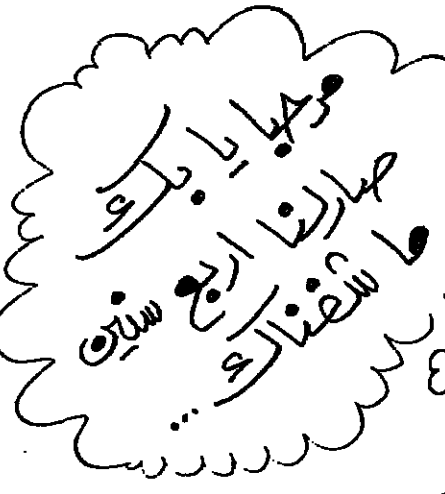 مرحبا يا بك
صارلنا اربع سنين
ما شفناك ...